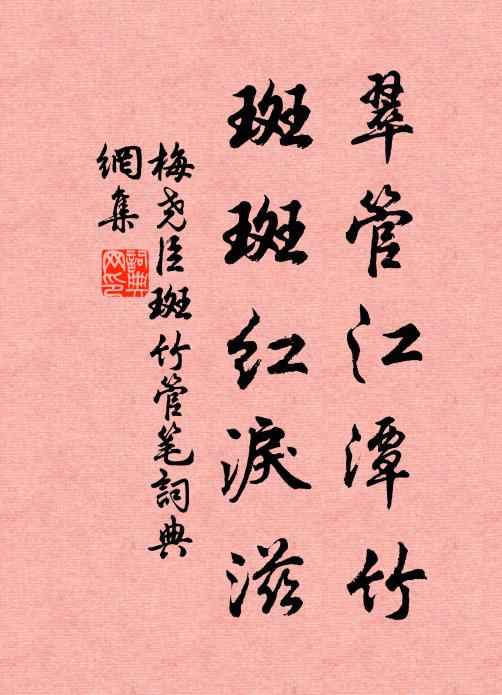 翠管江潭竹
斑斑红淚滋
梅尧臣斑竹管笔詞典
網集
詞典
网印